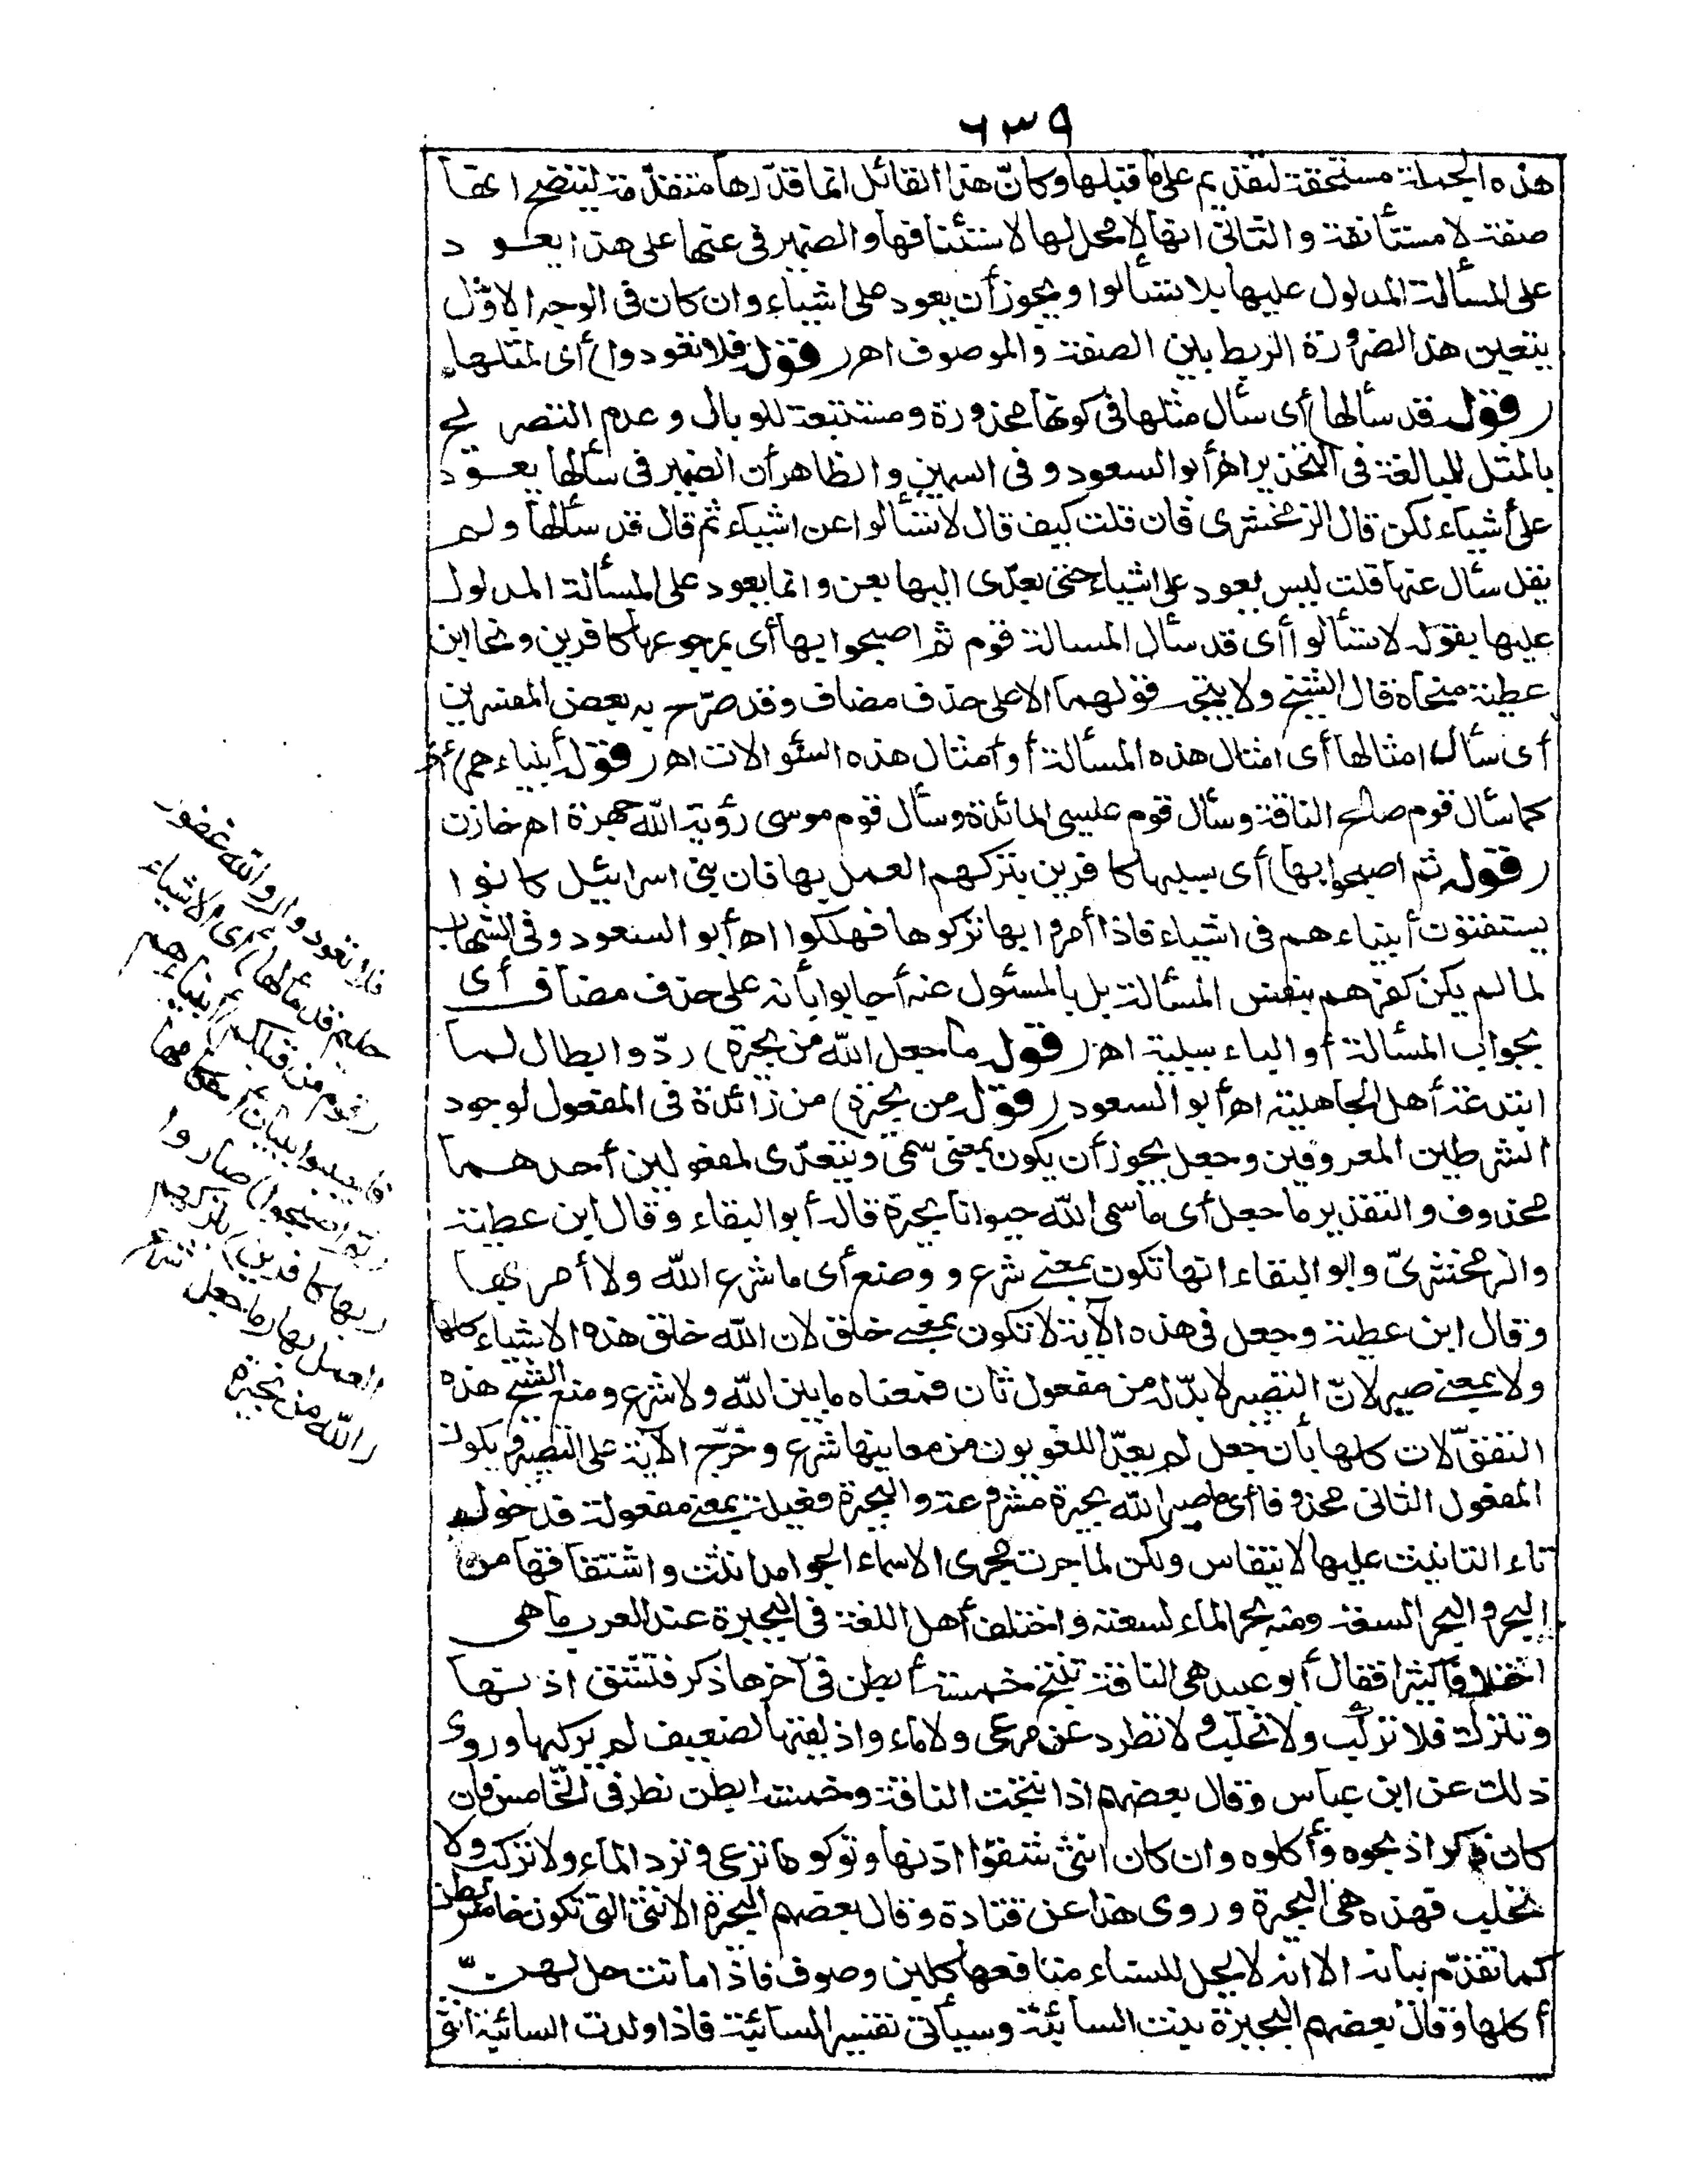 ٦٣٩
هذه الجملة مستحقة للتقديم على ما قبلها وكأنّ هذا القائل انما قدّرها متقدّمة ليتضح انها
صفة لا مستأنفة والثاني انها لا محل لها لاستئنافها والضمير في عنها على هذا يعود
على المسألة المدلول عليها بلا تسألوا ويجوز أن يعود على اشياء وان كان في الوجه الاوّل
يتعين هذا لضرورة الربط بين الصفة والموصوف اهـ (قوله فلا تعودوا) أى لمثلها
(قوله قد سألها) أى سأل مثلها في كونها محذورة ومستتبعة للوبال وعدم التصريح
بالمثل للمبالغة في التحذير اهـ أبو السعود وفي السمين والظاهر أن الضمير في سألها يعود
على أشياء لكن قال الزمخشرى فان قلت كيف قال لا تسألوا عن اشياء ثم قال قد سألها ولم
يقل سأل عنها قلت ليس يعود على اشياء حتى يعدّى اليها بعن وانما يعود على المسألة المدلول
عليها بقوله لا تسألوا أى قد سأل المسالة قوم ثم اصبحوا بها أى بمرجوعها كافرين ونحا ابن
عطية منحاه قال الشيخ ولا يتجه قولهما الا على حذف مضاف وقد صرّح به بعض المفسرين
أى سأل امثالها أى امثال هذه المسألة أو أمثال هذه السئوالات اهـ (قوله أنبياءهم) أى
كما سأل قوم صالح الناقة وسأل قوم عيسى المائدة وسأل قوم موسى رؤية الله جهرة اهـ خازن
(قوله ثم اصبحوا بها) أى بسببها كافرين بتركهم العمل بها فان بني اسرائيل كانوا
يستفتون أنبياءهم في اشياء فاذا أمروا بها تركوها فهلكوا اهـ أبو السعود وفي الشهاب
لما لم يكن كفرهم بنفس المسألة بل بالمسئول عنه أجابوا بأنه على حذف مضاف أى
بجواب المسألة أو الباء سببية اهـ (قوله ما جعل الله من بحيرة) ردّ وابطال لما
ابتدعه أهل الجاهلية اهـ أبو السعود (قوله من بحيرة) من زائدة في المفعول لوجود
الشرطين المعروفين وجعل يجوز أن يكون بمعنى سمى ويتعدّى لمفعولين أحدهما
محذوف والتقدير ما جعل أى ما سمى الله حيوانا بحيرة قاله أبو البقاء وقال ابن عطية
والزمخشرىّ وابو البقاء انها تكون بمعنى شرع ووضع أى ما شرع الله ولا أمر بها
وقال ابن عطية وجعل في هذه الآية لا تكون بمعنى خلق لان الله خلق هذه الاشياء كلها
ولا بمعنى صير لانّ التصيير لا بدّ له من مفعول ثان فمعناه ما بين الله ولا شرع ومنع الشيخ هذه
النقولات كلها بأن جعل لم يعدّ اللغويون من معانيها شرع وخرّج الآية على التصيير ويكون
المفعول الثاني محذوفا أى ما صير الله بحيرة مشروعة والبحيرة فعيلة بمعنى مفعولة فدخول
تاء التانيث عليها لا ينقاس ولكن لما جرت مجرى الاسماء الجوامد انثت واشتقاقها من
البحر والبحر السعة ومنه بحر الماء لسعته واختلف أهل اللغة في البحيرة عند العرب ما هى
اختلافا كثيرا فقال أبو عبيد هى الناقة تنتج خمسة أبطن في آخرها ذكر فتشق اذنها
وتترك فلا تركب ولا تحلب ولا تطرد عن مرعى ولا ماء واذ لقيها الضعيف لم يركبها وروى
ذلك عن ابن عباس وقال بعضهم اذا نتجت الناقة وخمسة ابطن نظر في الخامس فان
كان ذكرا ذبحوه وأكلوه وان كان انثى شقوا اذنها وتوكوها ترعى وترد الماء ولا تركب ولا
تحلب فهذه هى البحيرة وروى هذا عن قتادة وقال بعضهم البحيرة الانثى التى تكون خامس بطن
كما تقدّم بيانه الا انه لا يحل للنساء منافعها كلبن وصوف فاذا ماتت حل لهنّ
أكلها وقال بعضهم البحيرة بنت السائبة وسيأتى تفسير السائبة فاذا ولدت السائبة انثى
فلا تعودوا (والله غفور
حليم قد سألها) أى الاشياء
(قوم من قبلكم) أنبياءهم
فأجيبوا ببيان أحكامها
(ثم أصبحوا) صاروا
(بها كافرين) بتركهم
العمل بها (ما جعل) شرع
(الله من بحيرة